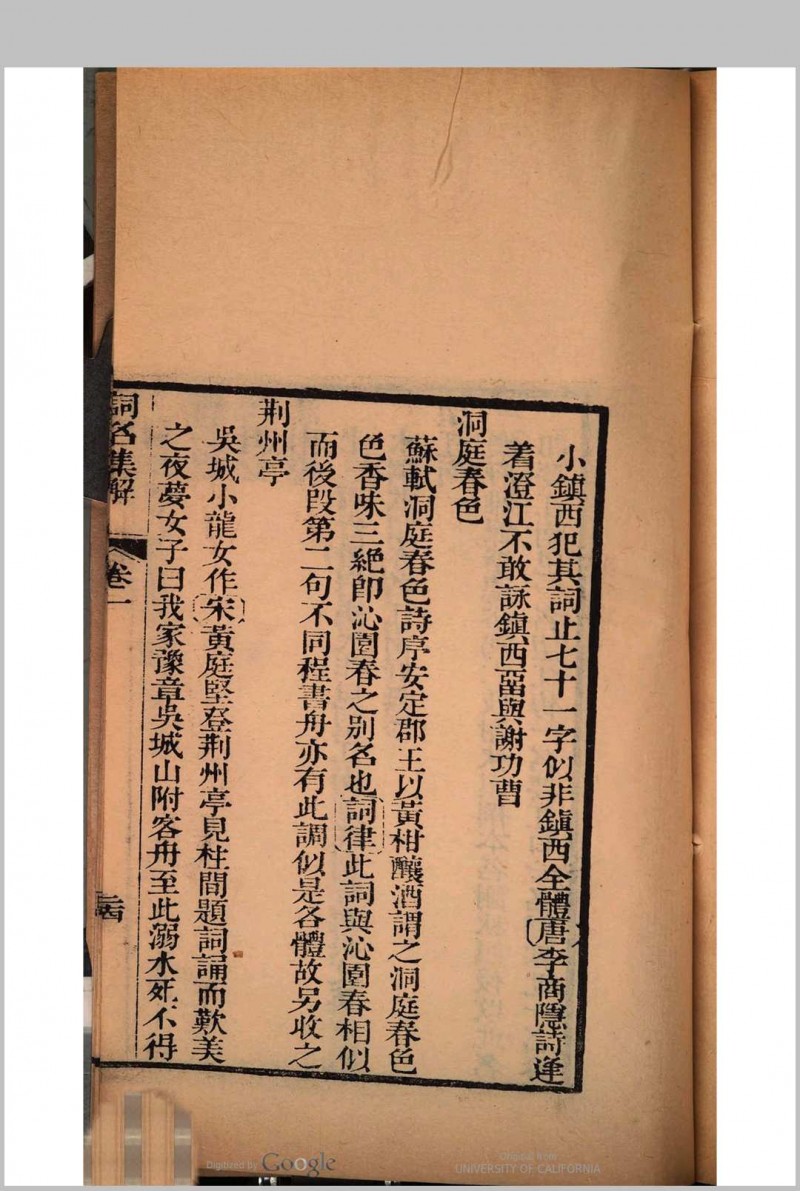 小鎮西犯其詞止七十一字似非鎮西全體唐李商隱詩逢
着澄江不敢詠鎮西畱與謝功曹
洞庭春色
蘇軾洞庭春色詩序安定郡王以黃柑釀酒謂之洞庭春色
色香味三絕卽沁園春之别名也詞律此詞與沁園春相似
而後段第二句不同程書舟亦有此調似是各體故另收之
荆州亭
吳城小龍女作宋黃庭堅登荆州亭見柱間題詞誦而歎美
之夜夢女子曰我家豫章吳城山附客舟至此溺水死不得
詞名集解
卷一
二十四
Digitized by Google
Original from
UNIVERSITY OF CALIFORNIA